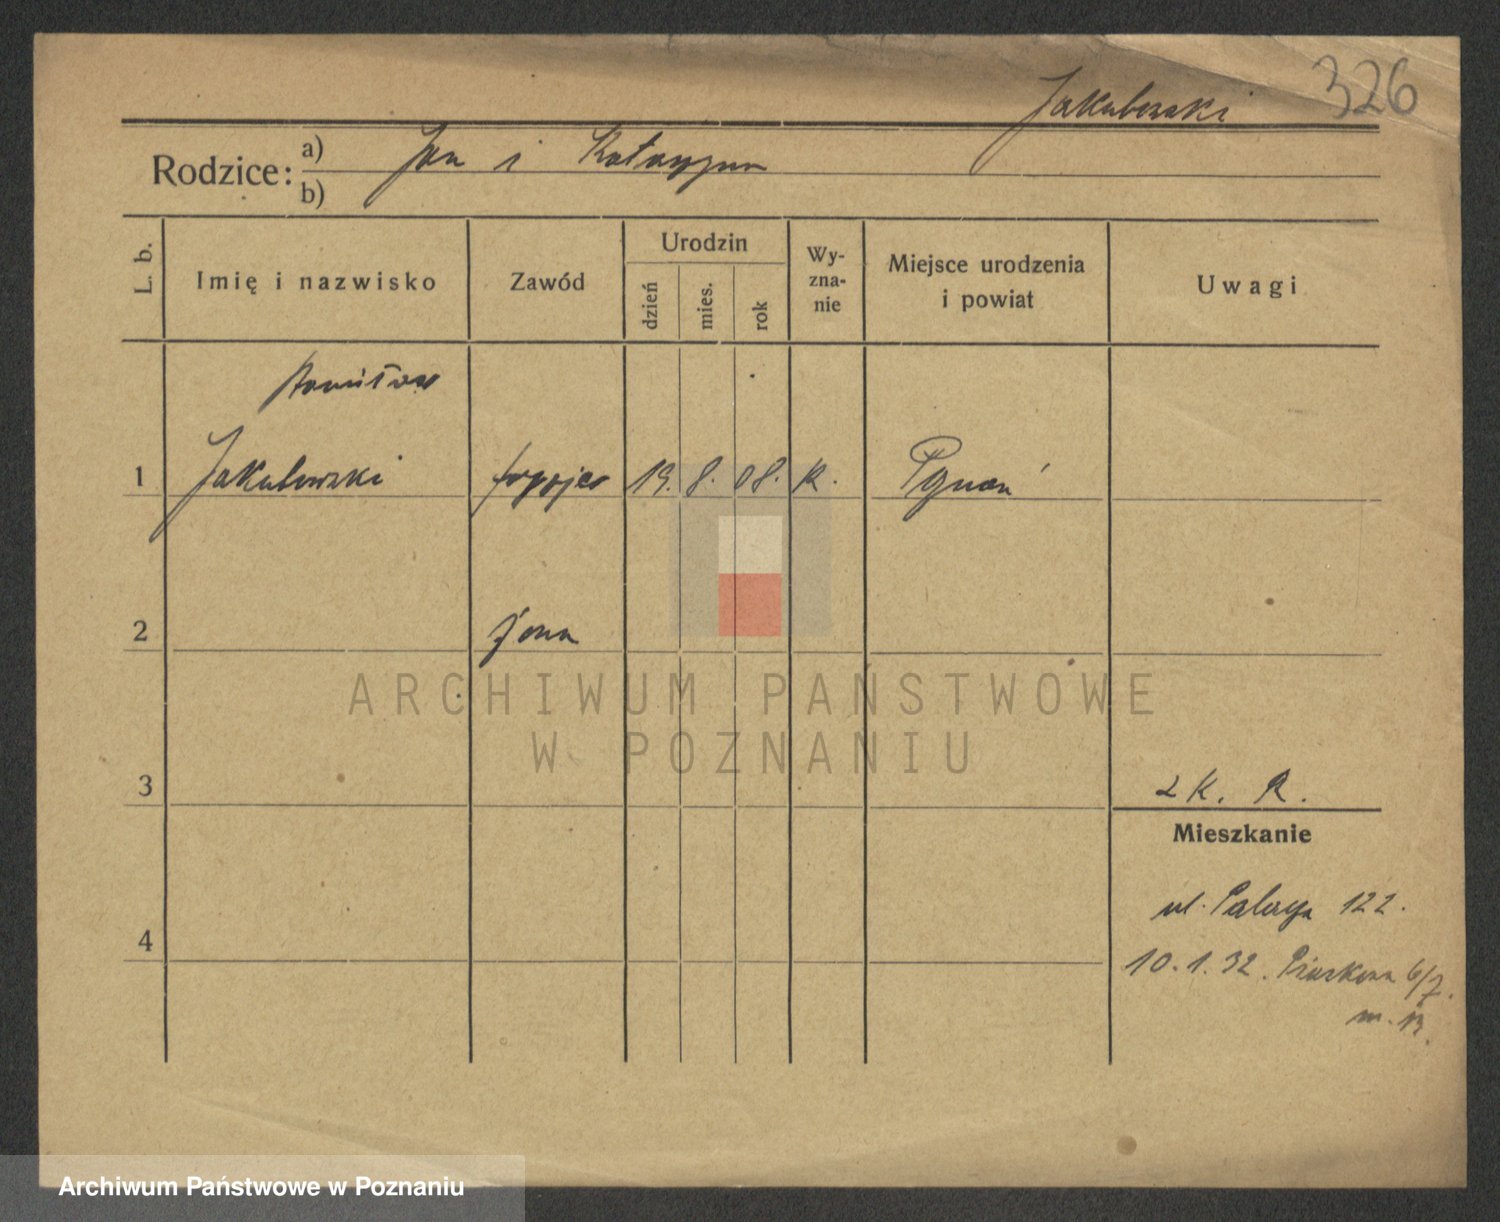 326
Jakubowski
Rodzice: a) Jan i Katarzyna
b)
L. b.
Imię i nazwisko
Zawód
Urodzin
dzień
mies.
rok
Wy-
zna-
nie
Miejsce urodzenia
i powiat
Uwagi
Stanisław
1 Jakubowski fryzjer 19. 8. 08. R. Poznań
2 żona
3
4
2 K. R.
Mieszkanie
ul. 122.
10.1.32. Piaskowa 6/7.
m. 13.
ARCHIWUM PAŃSTWOWE
W POZNANIU
Archiwum Państwowe w Poznaniu